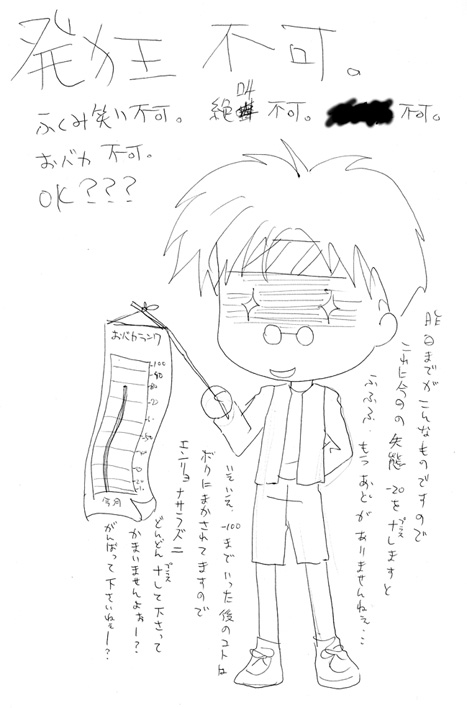 発狂 不可。
ふくみ笑い 不可。 絶叫 不可。 不可。
おバカ 不可。
OK???
おバカランク
-100
-90
-80
-70
-60
-50
-40
-30
-20
-10
今月
昨日までがこんなものですので
これに今日の失態 -20を+プラスしますと
ふふふ もうあとがありませんねえ…
いえいえ、-100までいった後のコトは
ボクにまかされてますので
エンリョナサラズニ
どんどん+プラスして下さって
かまいませんよぉー?
がんばって下さいねぇー?